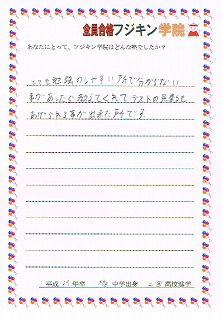 全員合格フジキン学院
あなたにとって、フジキン学院はどんな塾でしたか?
とても勉強のしやすい所で分からない
事があったら教えてくれて テストの点数も
あげられる事が出来た所です
平成 年卒 中学出身 高校進学